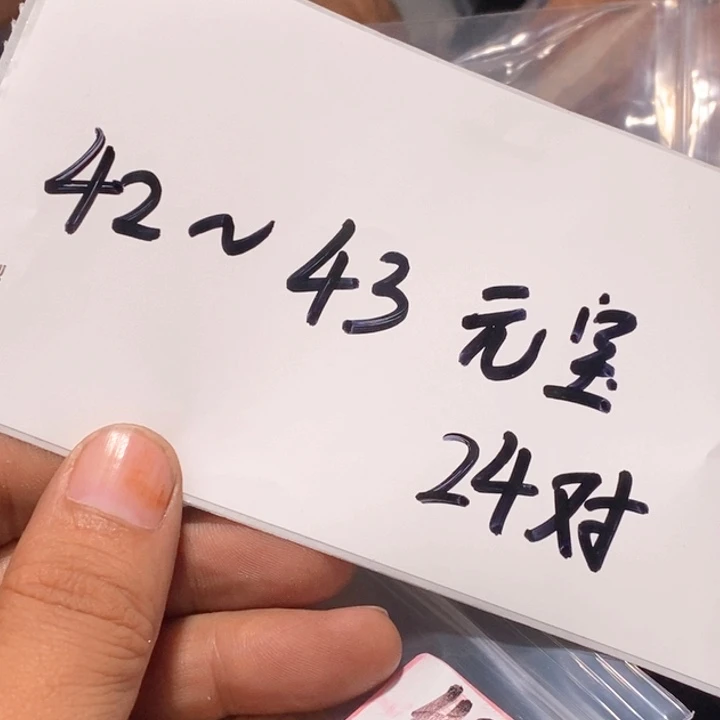 42~43 元宝
24对